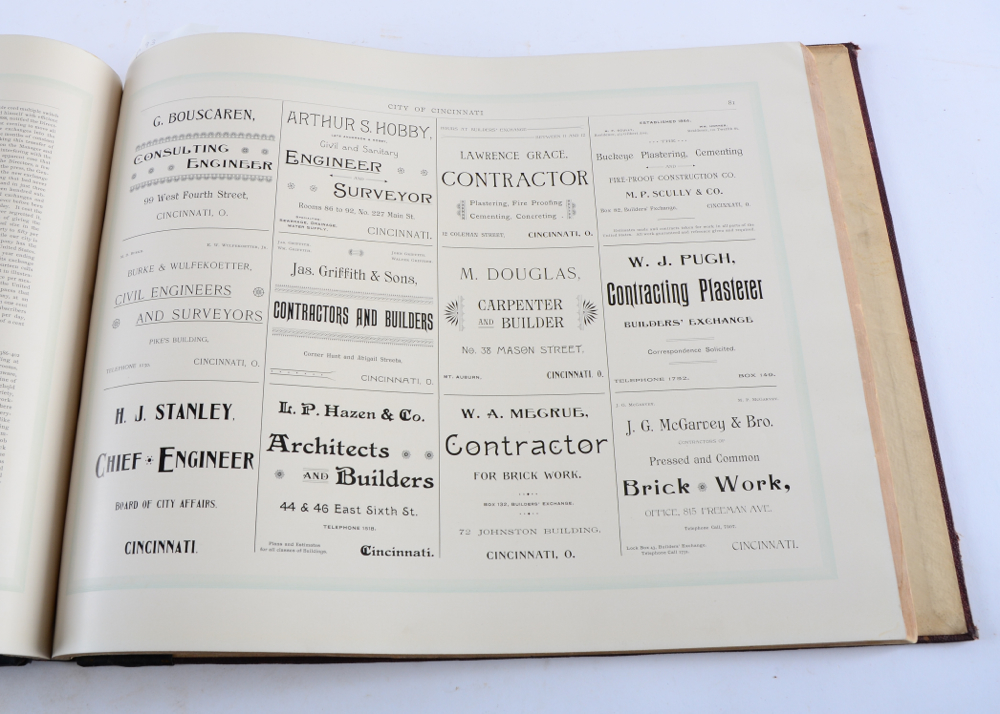 CITY OF CINCINNATI
81
G. BOUSCAREN,
CONSULTING
ENGINEER
99 West Fourth Street,
CINCINNATI, O.
ARTHUR S. HOBBY,
Civil and Sanitary
ENGINEER
AND
SURVEYOR
Rooms 86 to 92, No. 227 Main St.
SEWERAGE, DRAINAGE,
WATER SUPPLY.
CINCINNATI.
LAWRENCE GRACE,
CONTRACTOR
Plastering, Fire Proofing
Cementing, Concreting
12 COLEMAN STREET,
CINCINNATI, O.
ESTABLISHED
THE
Buckeye Plastering, Cementing
AND
FIRE-PROOF CONSTRUCTION CO.
M. P. SCULLY & CO.
Box 62, Builders' Exchange.
CINCINNATI, O.
Estimates made and contracts taken for work in all parts of the
United States. All work guaranteed and reference given and required.
H. WULFEKOETTER, Jr.
BURKE & WULFEKOETTER,
CIVIL ENGINEERS
AND SURVEYORS
PIKE'S BUILDING,
TELEPHONE
CINCINNATI, O.
Jas. Griffith
Wm. Griffith
John Griffith
William Griffith
Jas. Griffith & Sons,
CONTRACTORS AND BUILDERS
Corner Hunt and Abigail Streets.
CINCINNATI, O.
M. DOUGLAS,
CARPENTER
AND BUILDER
No. 38 MASON STREET,
MT. AUBURN,
CINCINNATI, O.
W. J. PUGH,
Contracting Plasterer
BUILDERS' EXCHANGE
Correspondence Solicited.
TELEPHONE 1752.
BOX 148.
H. J. STANLEY,
CHIEF ENGINEER
BOARD OF CITY AFFAIRS.
CINCINNATI.
L. P. Hazen & Co.
Architects
AND Builders
44 & 46 East Sixth St.
TELEPHONE 1518.
Plans and Estimates
for all classes of Buildings.
Cincinnati.
W. A. MEGRUE,
Contractor
FOR BRICK WORK,
BOX 132, BUILDERS' EXCHANGE.
72 JOHNSTON BUILDING,
CINCINNATI, O.
J. G. McGARVEY
M. F. McGARVEY
J. G. McGarvey & Bro.
CONTRACTORS OF
Pressed and Common
Brick Work,
OFFICE, 815 FREEMAN AVE.
Telephone Call, 7507.
Lock Box 43, Builders' Exchange.
Telephone Call 1752.
CINCINNATI.